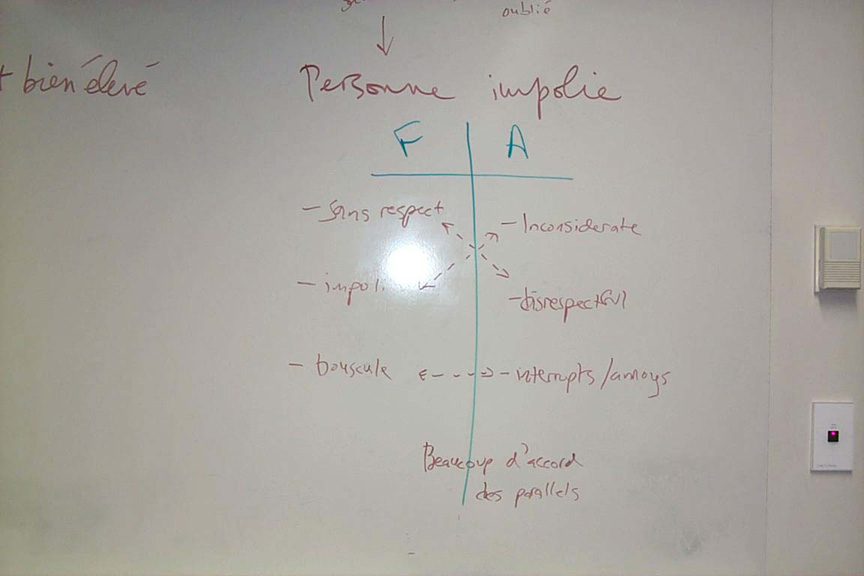 oublié
bien élevé
Personne impolie
F A
- Sans respect
- Inconsiderate
- impoli
- disrespectful
- bouscule
- interrupts/annoys
Beaucoup d'accord
des parallels